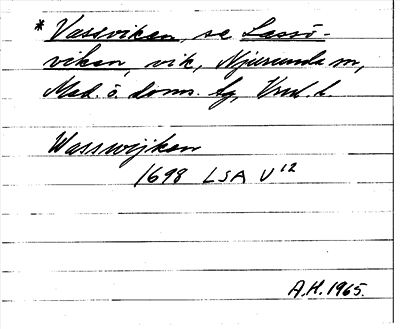 * Vassviken, se Lassö-
viken, vik, Njurunda sn,
Med. ö. doms. tg, Vnrl. l.
Wasswijken
1698 LSA U12
A.H. 1965.